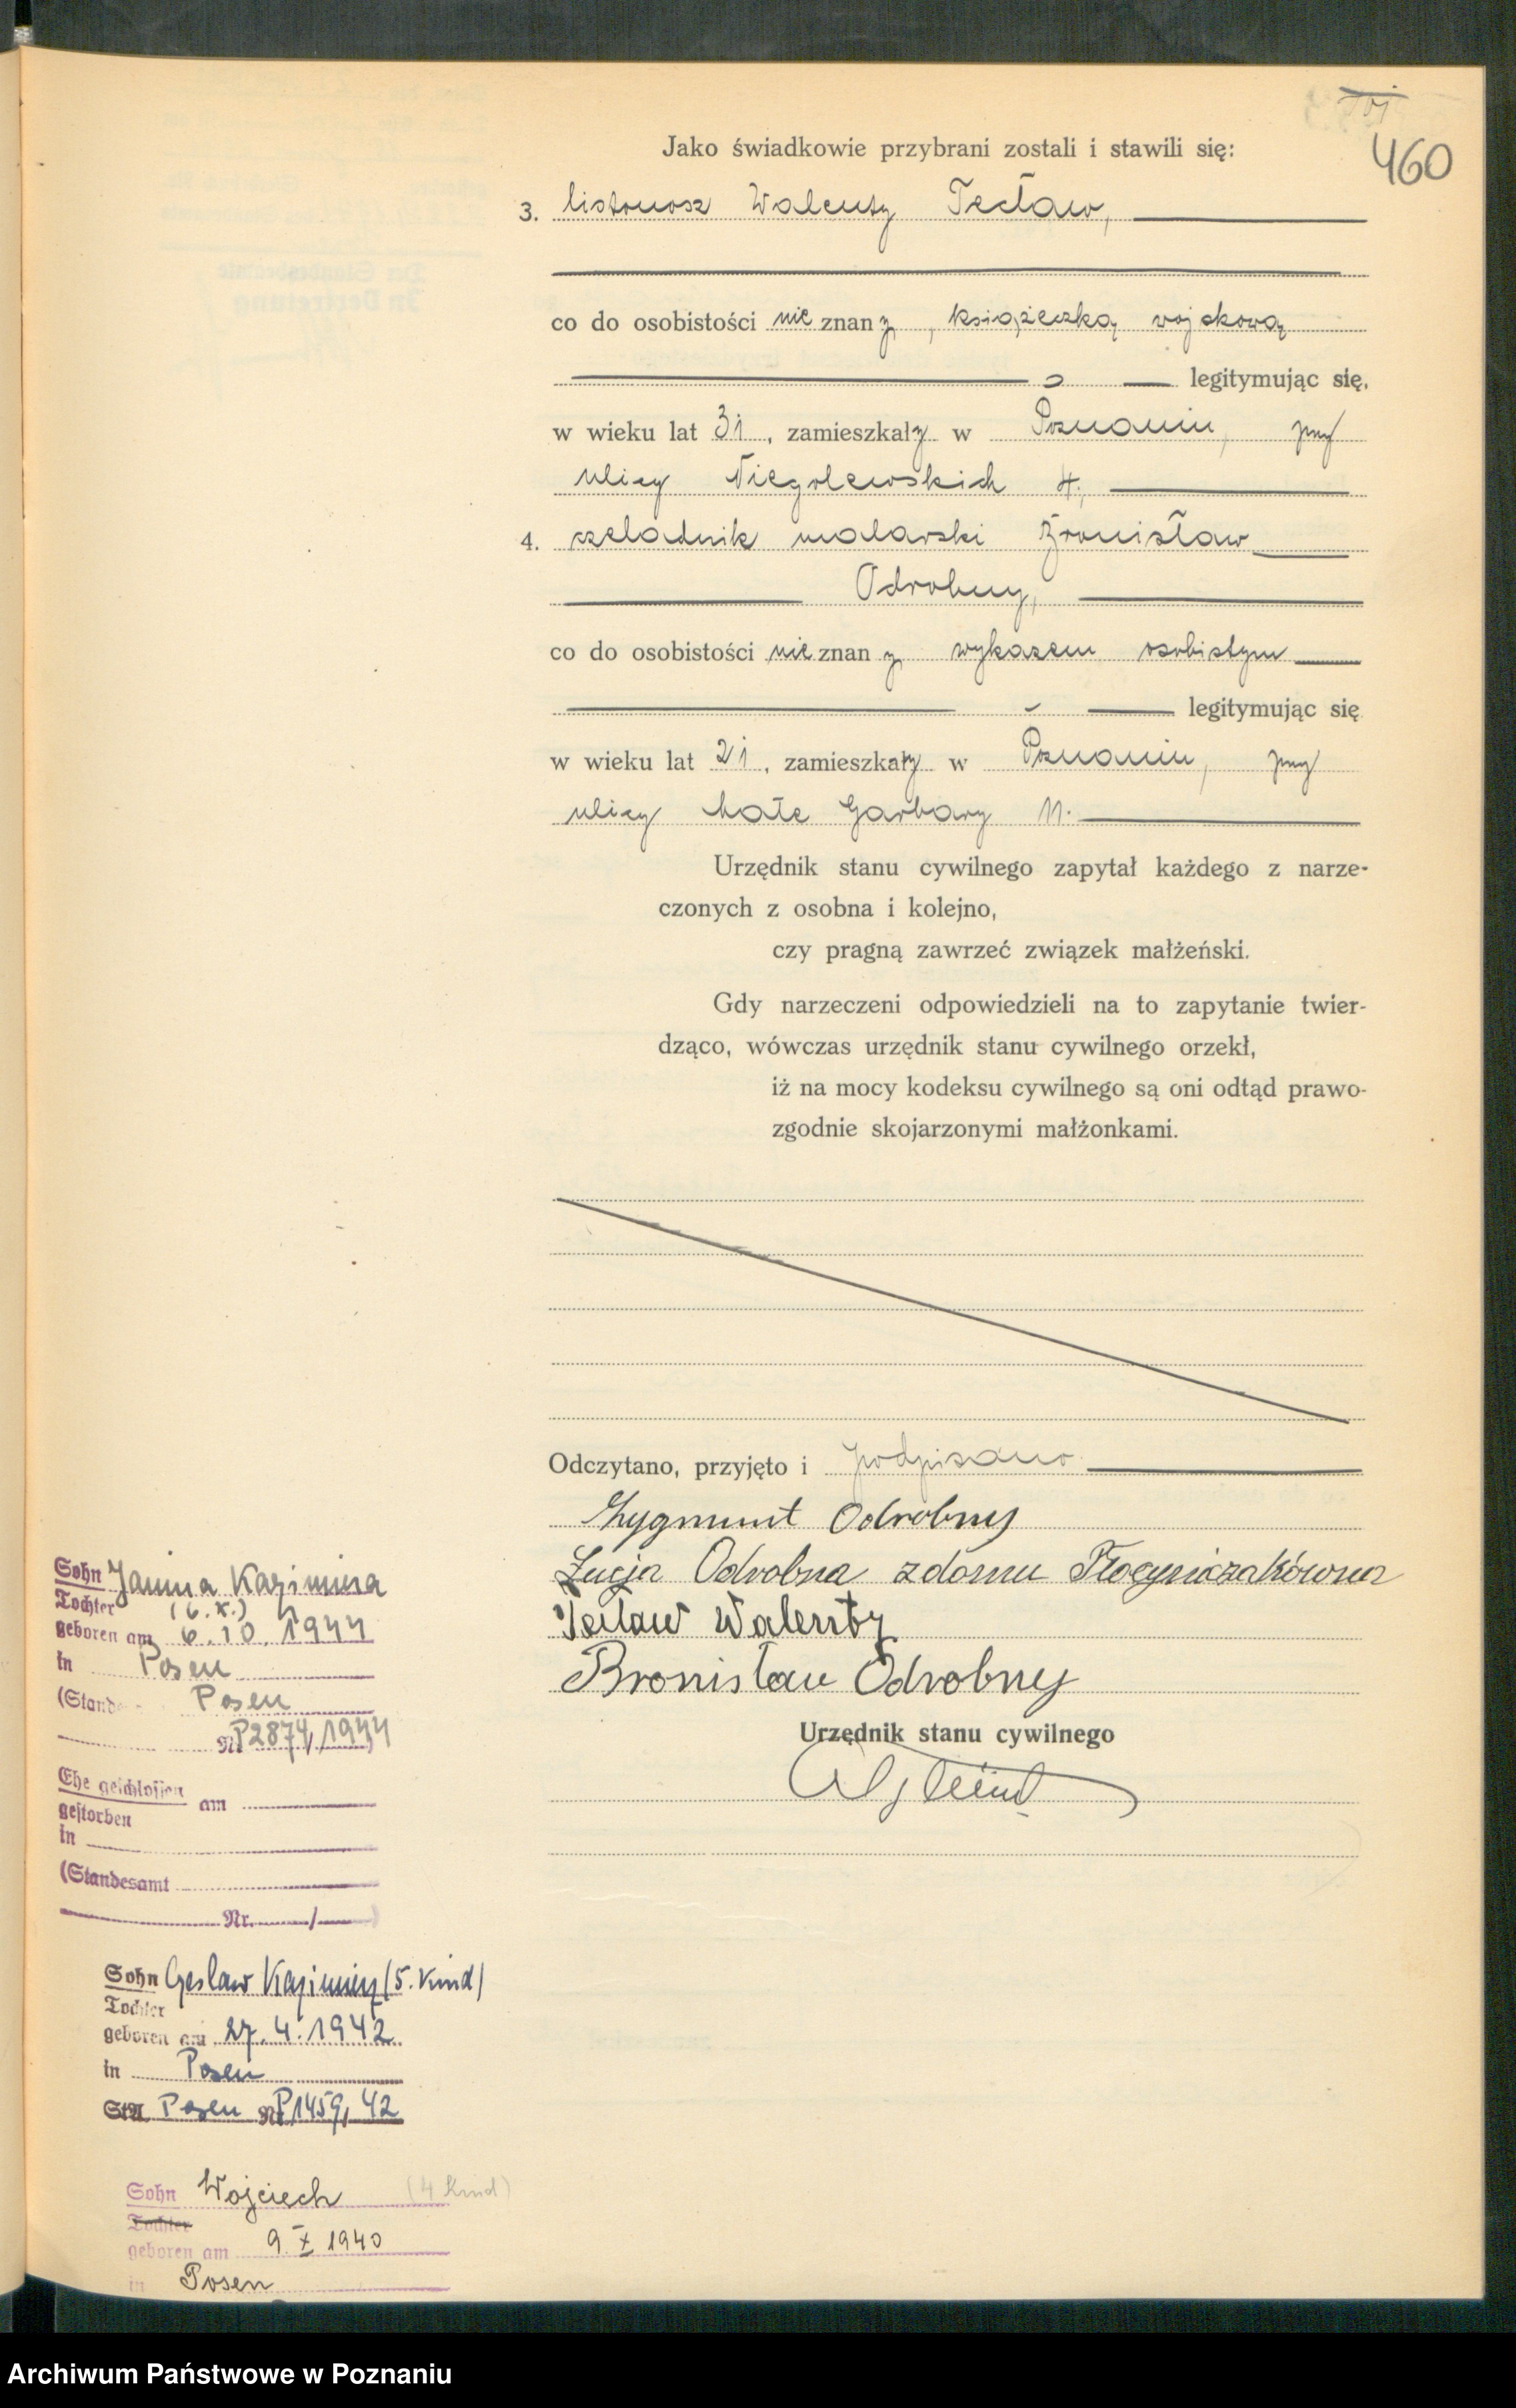 460
Jako świadkowie przybrani zostali i stawili się:
3. listonosz Walenty Tecław,
co do osobistości nie znany, książeczką wojskową
legitymując się,
w wieku lat 31, zamieszkały w Poznaniu, przy
ulicy Niegolewskich 4,
4. czeladnik malarski Bronisław
Odrobny,
co do osobistości nie znany wykazem osobistym
legitymując się
w wieku lat 21, zamieszkały w Poznaniu, przy
ulicy Małe Garbary 11.
Urzędnik stanu cywilnego zapytał każdego z narze-
czonych z osobna i kolejno,
czy pragną zawrzeć związek małżeński.
Gdy narzeczeni odpowiedzieli na to zapytanie twier-
dząco, wówczas urzędnik stanu cywilnego orzekł,
iż na mocy kodeksu cywilnego są oni odtąd prawo-
zgodnie skojarzonymi małżonkami.
Odczytano, przyjęto i podpisano
Zygmunt Odrobny
Łucja Odrobna z domu
Tecław Walenty
Bronisław Odrobny
Urzędnik stanu cywilnego
Sohn Janina Kazimiera
Tochter (6. K.)
geboren am 6.10.1944
in Posen
(Stande Posen
Nr P2874/1944
Ehe geschlossen am
gestorben
in
(Standesamt
Nr. /
Sohn Czeslaw Kazimierz (5. Kind)
Tochter
geboren am 27.4.1942
in Posen
StA Posen Nr P1459/42
Sohn Wojciech (4 Kind)
Tochter
geboren am 9 X 1940
in Posen
Archiwum Państwowe w Poznaniu